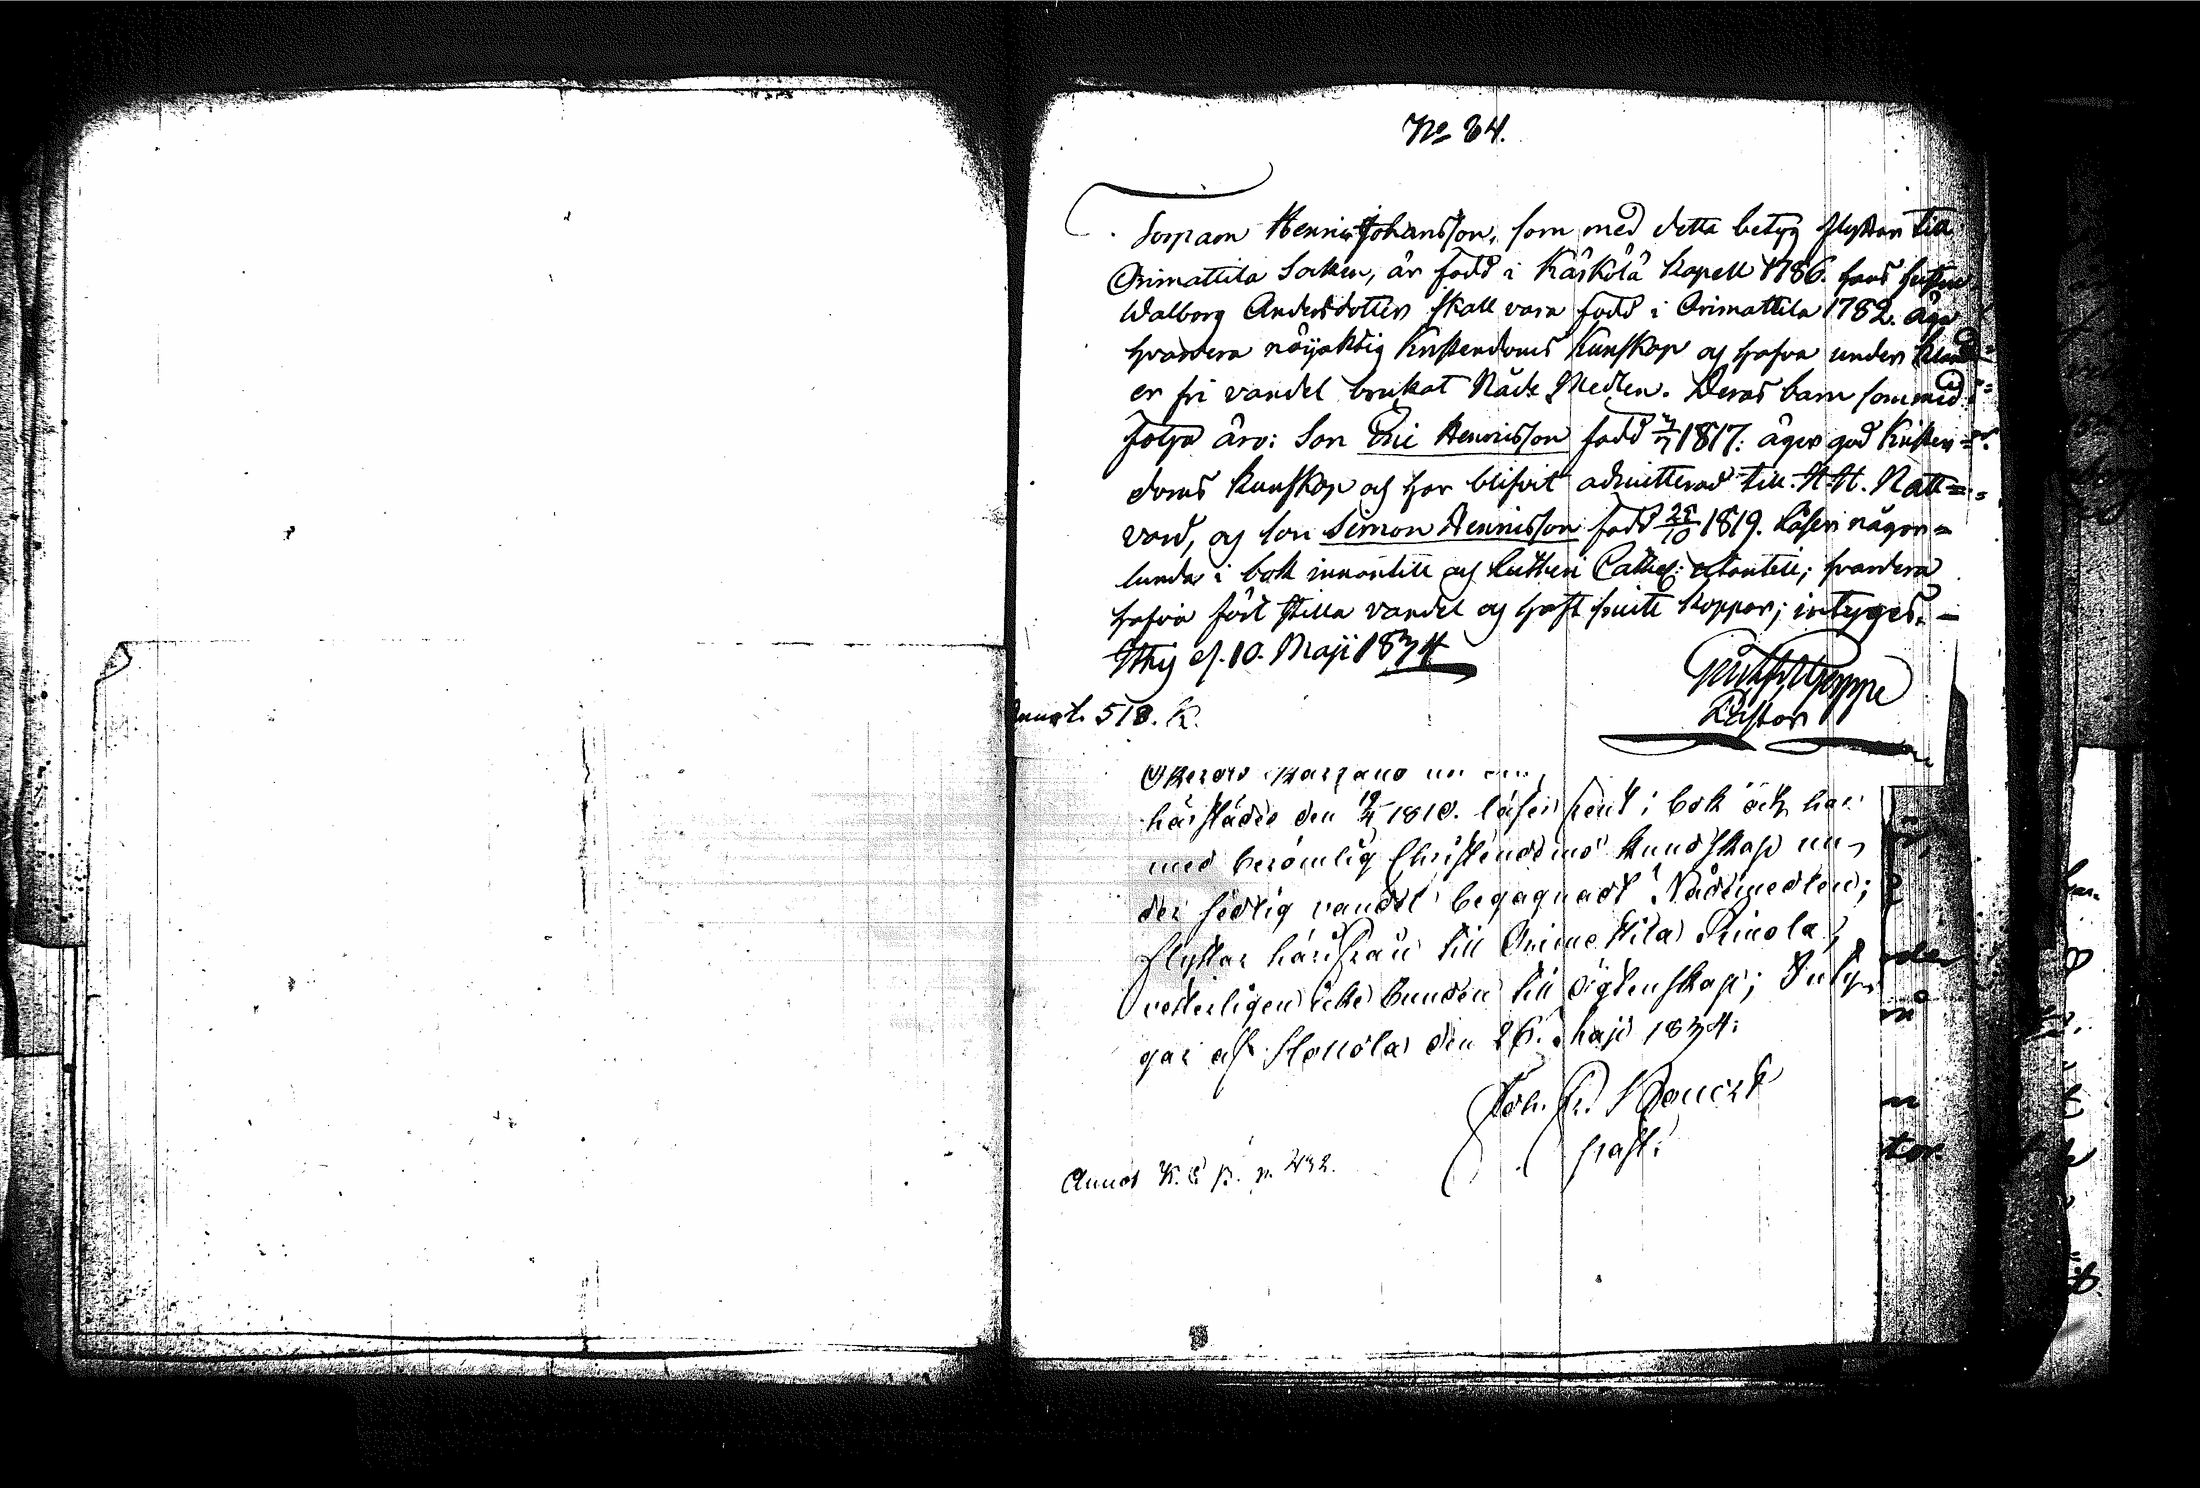 No 34.
Torparn Henric Johansson, som med detta betyg flyttar till
Orimattila Socken, är född i Kärkölä Kapell 1786. hans hustru
Walborg Andersdotter skall vara född i Orimattila 1782. äga
hvardera nöjaktig Kristendoms Kunskap och hafva under kland-
er fri vandel brukat Nåde Medlen. Deras barn som med
följa äro: Son Eric Henricsson född 1817. äger god Kristen-
doms Kunskap och har blifvit admitterad till H. H. Natt-
vard, och son Simon Henricsson född 25/10 1819. Läser någor-
lunda i bok innantill och Lutheri Catteches: utantill; hvardera
hafva fört stilla vandel och haft koppor; intygas.
af. 10. Maji 1834
Pastor
Annot. 518. K.
härstädes den 19/4 1810. läser rent i bok och har
med berömlig Christendoms kundskap un-
der sedlig vandel begagnadt Nådemedlen;
flyttar härifrån till Orimattila
vetterligen icke bunden till ägtenskap; Inty-
gar af Hollola den 26. Maji 1834.
Joh. Fr.
past:
Annot K. B p. 432.